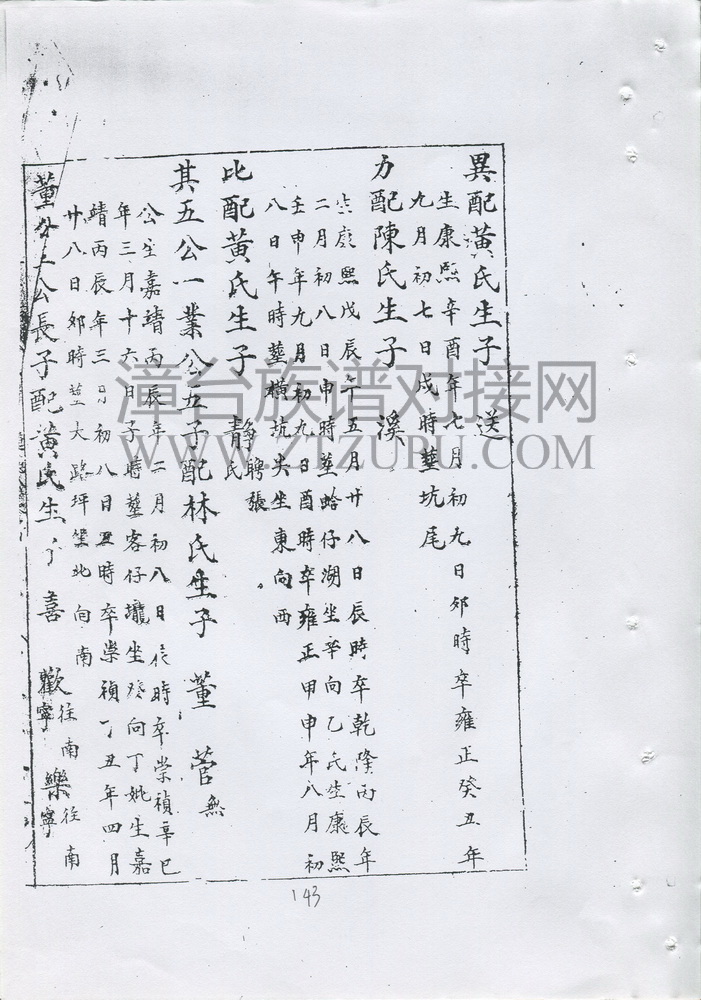 異配黃氏生子 送
生康熙辛酉年七月初九日邜時卒雍正癸丑年
九月初七日戌時塟坑尾
力配陳氏生子 溪
生康熙戊辰年五月廿八日辰時卒乾隆丙辰年
二月初八日申時塟蛤仔湖坐辛向乙氏生康熙
壬申年九月初九日酉時卒雍正甲申年八月初
八日午時塟橫坑尖坐東向西
比配黃氏生子 靜 聘張氏
其五公一業公五子配林氏生子 董 菅 無
公生嘉靖丙辰年二月初八日辰時卒崇禎辛巳
年三月十六日子時塟客仔壠坐癸向丁妣生嘉
靖丙辰年三月初八日丑時卒崇禎丁丑年四月
廿八日邜時塟大路坪坐北向南
董 公長子配黃氏生子 喜 歡 往南寧 樂 往南寧
漳台族谱对接网
WWW.ZTZUPU.COM
143